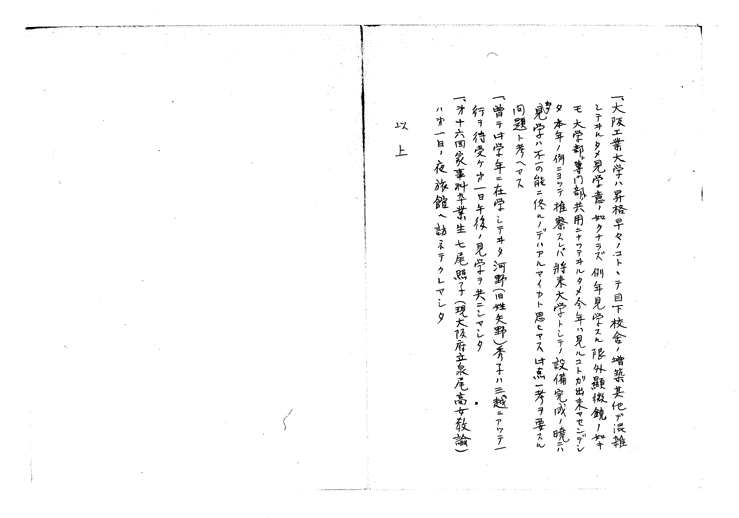 一、大阪工業大学ハ昇格早々ノコトヽテ目下校舎ノ増築其他デ混雑
シテヰルタメ見学意ノ如クナラズ例年見学スル限外顕微鏡ノ如キ
モ大学部専門部共用ニナツテヰルタメ今年ハ見ルコトガ出来マセンデシ
タ本年ノ例ニヨツテ推察スレバ将来大学トシテノ設備完成ノ暁ニハ
見学ハ不可能ニ終ルノデハアルマイカト思ヒマス此点一考ヲ要スル
問題ト考ヘマス
一、曾テ此学年ニ在学シテヰタ河野(旧姓矢野)秀子ハ三越ニアツテ一
行ヲ待受ケ第一日午後ノ見学ヲ共ニシマシタ
一、第十六回家事科卒業生七尾照子(現大阪府立泉尾高女教諭)
ハ第一日ノ夜旅館ヘ訪ネテクレマシタ
以上